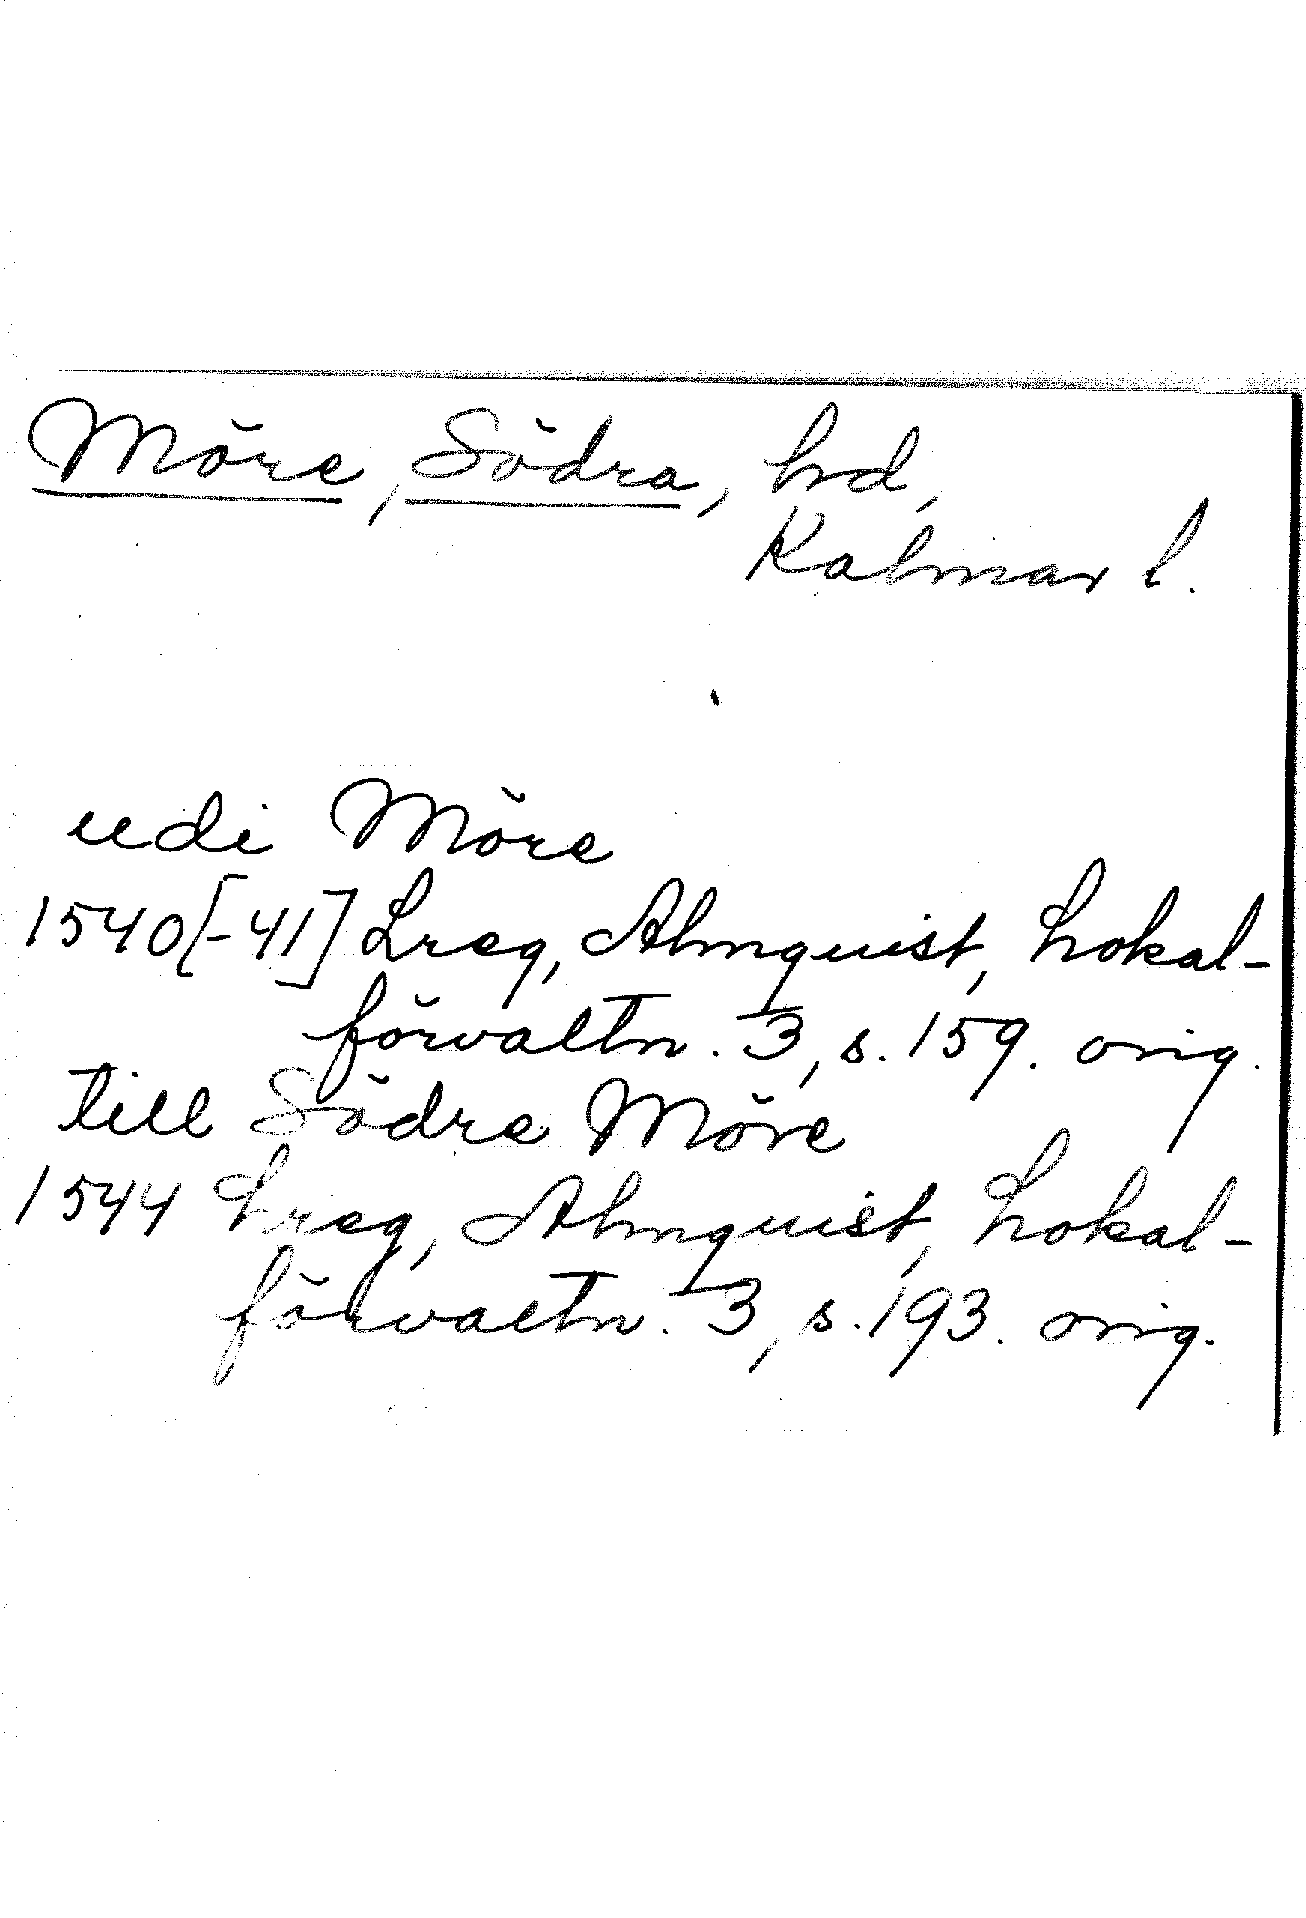 Möre, Södra, hd,
Kalmar l.
udi Möre
1540[-41] Lreg, Almquist, Lokal-
förvaltn. 3, s. 159. orig.
till Södre Möre
1544 Lreg, Almquist, Lokal-
förvaltn. 3, s. 193. orig.